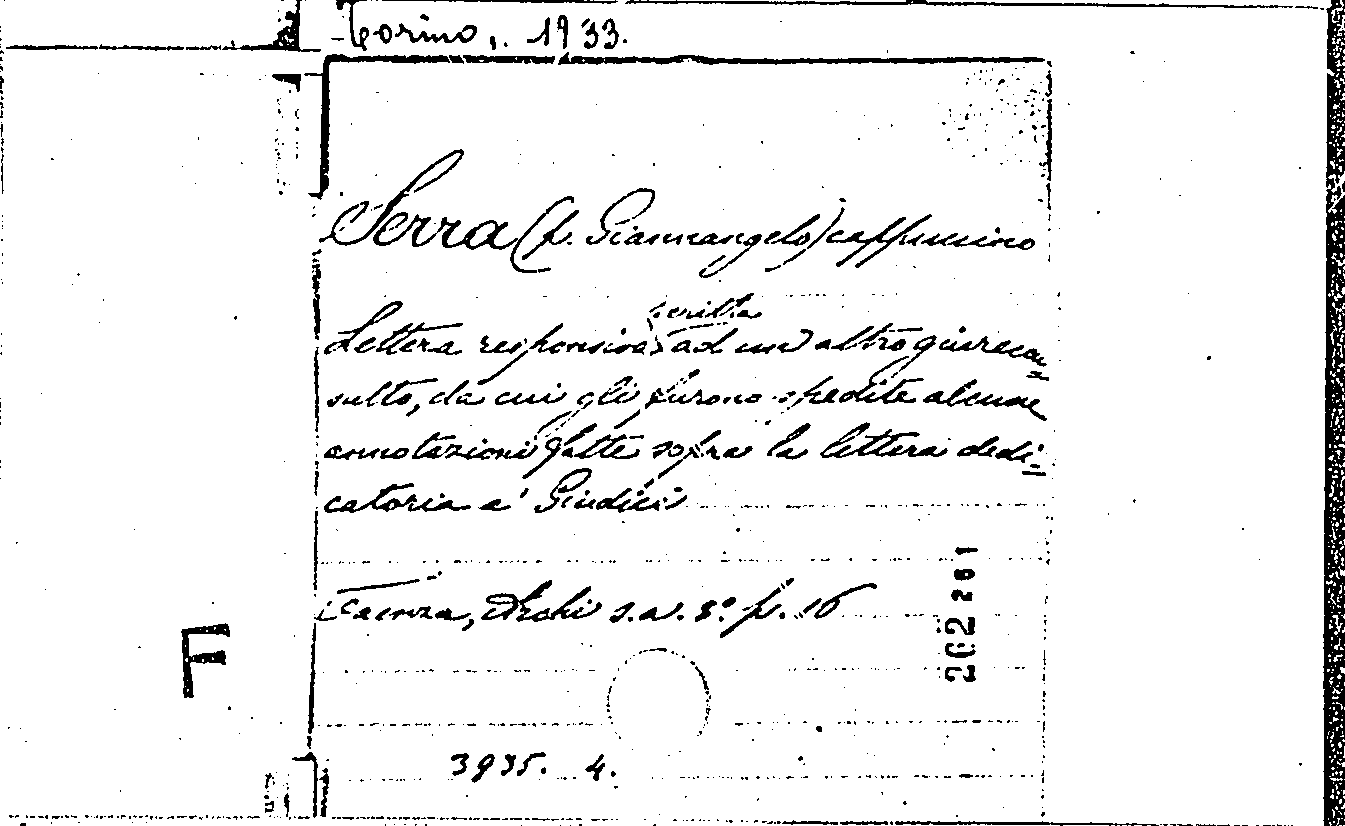 Torino, 1933.
Serra (p. Giannangelo) cappuccino
scritta
Lettera responsiva ad un altro giurecon=
sulto, da cui gli furono spedite alcune
annotazioni fatte sopra la lettera dedi=
catoria a' Giudici
Faenza, Archi s.a. 8º p. 16
202 261
F
3935. 4.